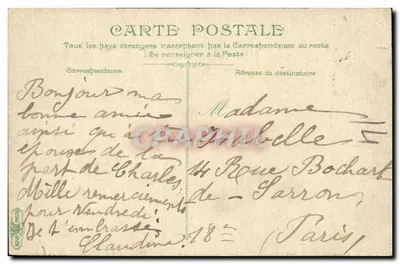 CARTE POSTALE
Tous les pays étrangers n'acceptent pas la Correspondance au recto
(Se renseigner à la Poste)
Correspondance
Adresse du destinataire
Bonjour ma
bonne amie
ainsi que
épouse de la
part de Charles,
Mille remerciements
pour Vendredi
Je t'embrasse
Claudine
Madame
Isabelle
14 Rue Bochart
de - Sarron,
18e (Paris)